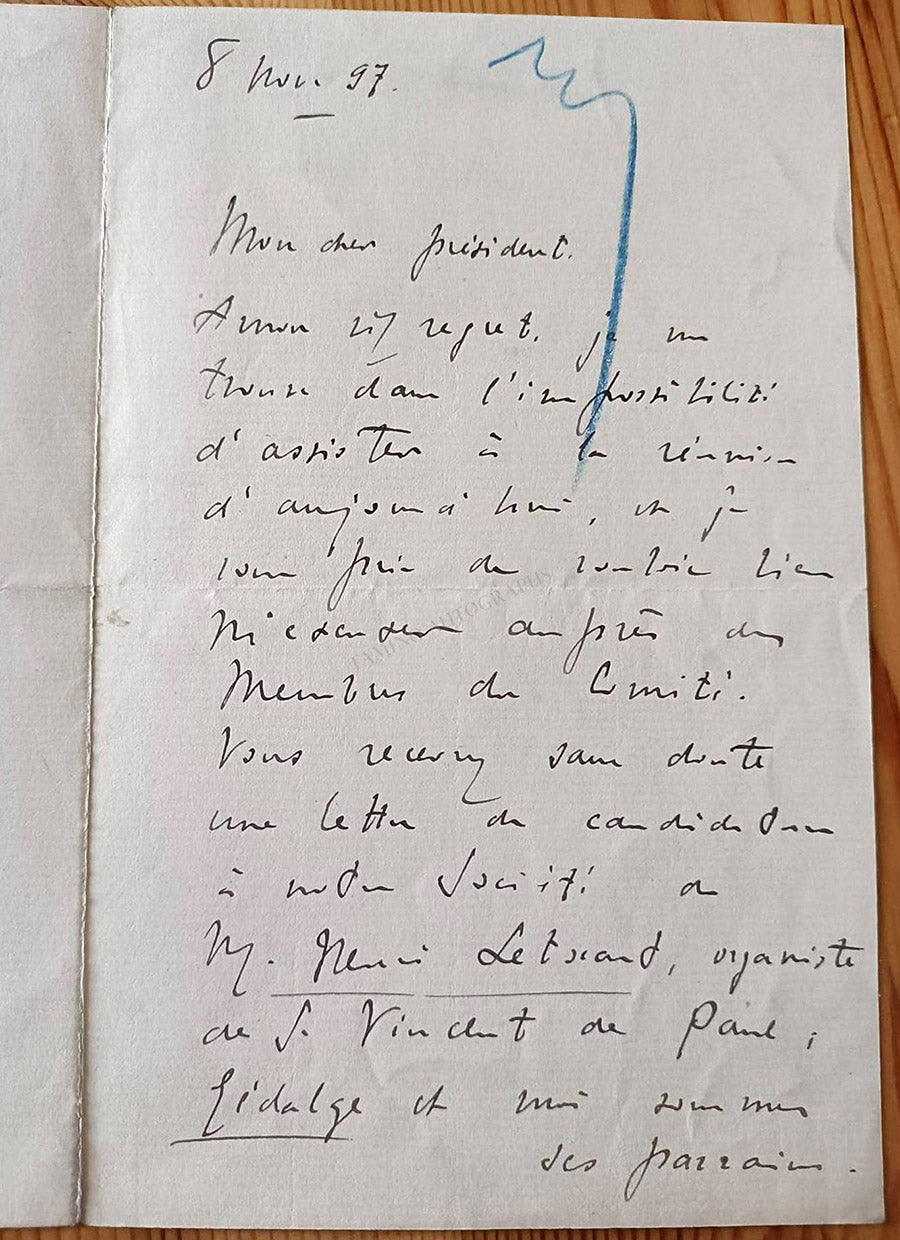 8 Nov 97.
Mon cher président.
A mon vif regret, je me
trouve dans l'impossibilité
d'assister à la réunion
d'aujourd'hui, et je
vous prie de vouloir bien
m'excuser auprès des
Membres du Comité.
Vous recevrez sans doute
une lettre de candidature
à notre Société de
M. Henri Letocart, organiste
de St Vincent de Paul;
et moi sommes
ses parrains.
TAMINO AUTOGRAPHS